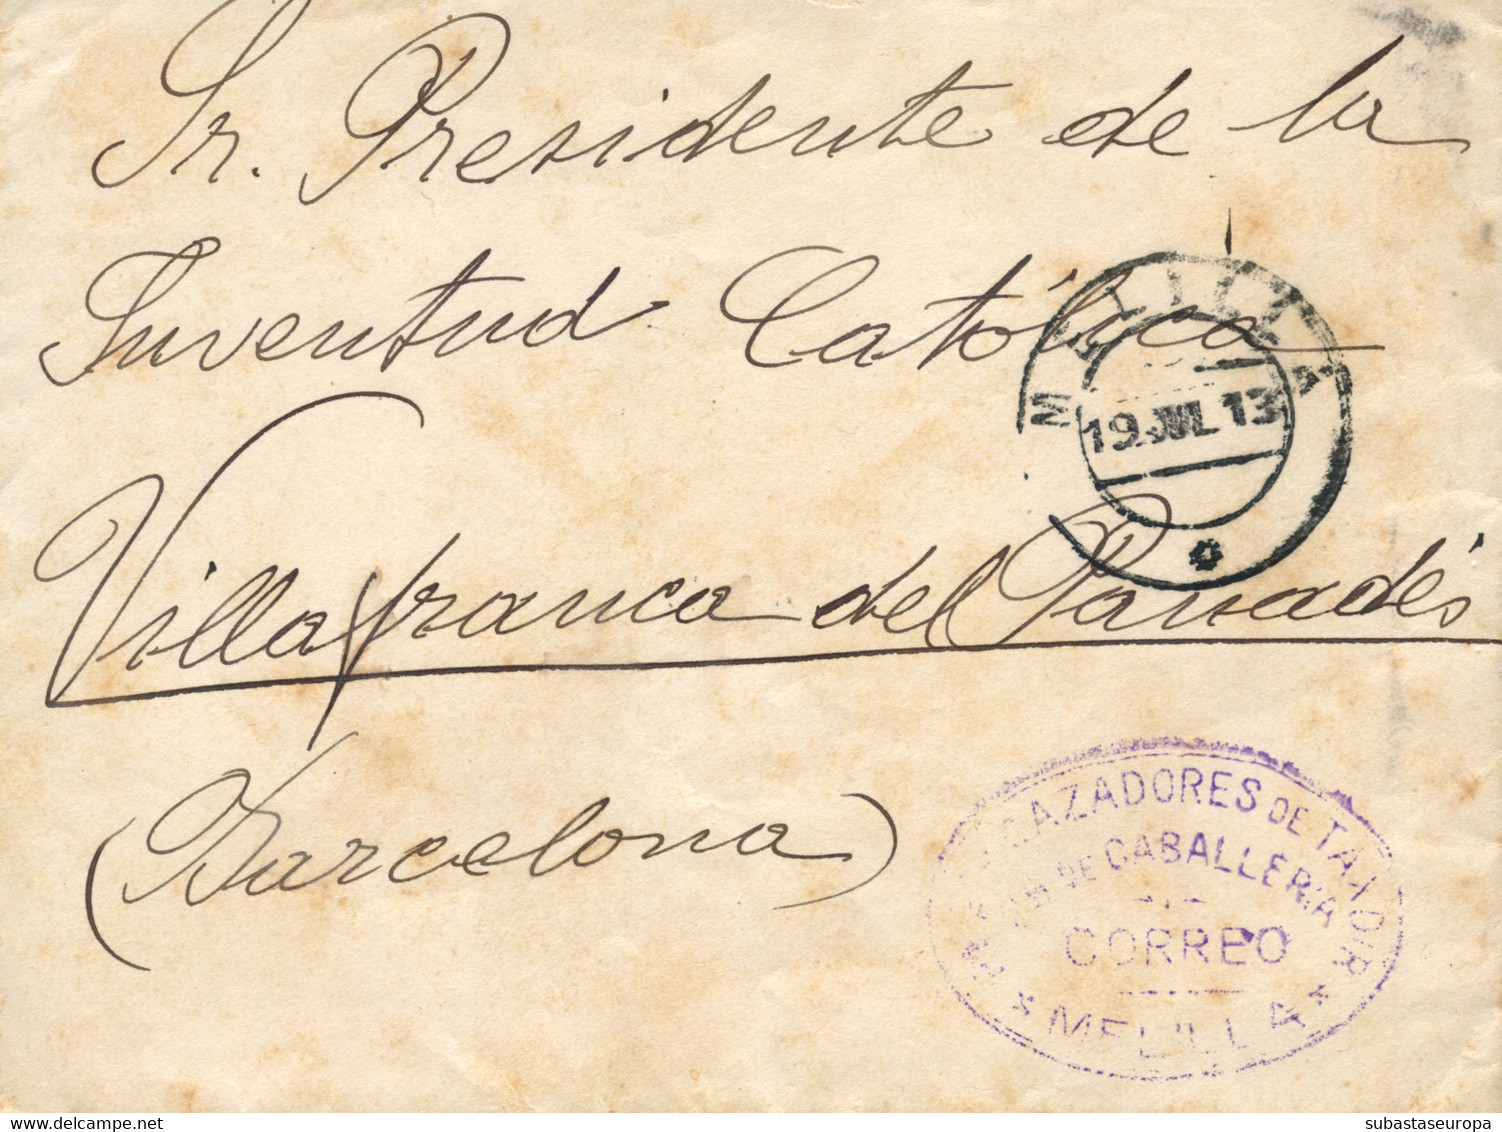 Sr. Presidente de la
Juventud Católica
MELILLA
19 JUL 13
Villafranca del Panadés
(Barcelona)
CAZADORES DE TAXDIR
DE CABALLERIA
CORREO
* MELILLA *
delcampe.net
subastaseuropa